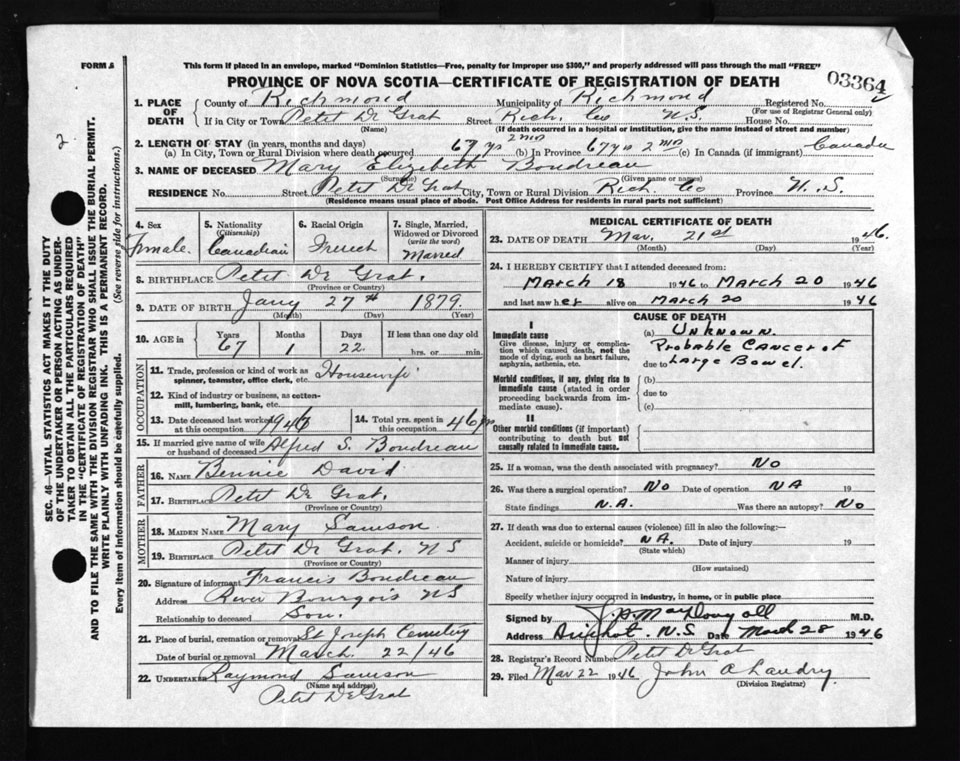 FORM 5
This form if placed in an envelope, marked "Dominion Statistics—Free, penalty for improper use $300," and properly addressed will pass through the mail "FREE"
PROVINCE OF NOVA SCOTIA—CERTIFICATE OF REGISTRATION OF DEATH
03364
2
1. PLACE OF DEATH County of Richmond Municipality of Richmond Registered No.
(For use of Registrar General only)
If in City or Town Petit De Grat Street Rich. Co N.S. House No.
(Name) (If death occurred in a hospital or institution, give the name instead of street and number)
2. LENGTH OF STAY (in years, months and days)
(a) In City, Town or Rural Division where death occurred 67 yrs 2 mo (b) In Province 67 yrs 2 mo (c) In Canada (if immigrant) Canada
3. NAME OF DECEASED Mary Elizabeth Boudreau
(Surname) (Given name or names)
RESIDENCE No. Street Petit De Grat City, Town or Rural Division Rich. Co Province N.S.
(Residence means usual place of abode. Post Office Address for residents in rural parts not sufficient)
4. Sex Female
5. Nationality (Citizenship) Canadian
6. Racial Origin French
7. Single, Married, Widowed or Divorced (write the word) Marred
8. BIRTHPLACE Petit De Grat.
(Province or Country)
9. DATE OF BIRTH Jany 27th 1879.
(Month) (Day) (Year)
10. AGE in Years Months Days If less than one day old
67 1 22 hrs. or min.
OCCUPATION
11. Trade, profession or kind of work as spinner, teamster, office clerk, etc. Housewife
12. Kind of industry or business, as cotton-mill, lumbering, bank, etc.
13. Date deceased last worked at this occupation 1946
14. Total yrs. spent in this occupation 46
15. If married give name of wife or husband of deceased Alfred S. Boudreau
FATHER
16. NAME Bennie David
17. BIRTHPLACE Petit De Grat.
(Province or Country)
MOTHER
18. MAIDEN NAME Mary Samson
19. BIRTHPLACE Petit De Grat. N S
(Province or Country)
20. Signature of informant Francis Boudreau
Address River Bourgois NS
Relationship to deceased Son.
21. Place of burial, cremation or removal St Joseph Cemetery
Date of burial or removal March 22/46
22. UNDERTAKER Raymond Samson
(Name and address)
Petit De Grat
MEDICAL CERTIFICATE OF DEATH
23. DATE OF DEATH Mar. 21st 1946.
(Month) (Day) (Year)
24. I HEREBY CERTIFY that I attended deceased from:
March 18 1946 to March 20 1946
and last saw her alive on March 20 1946
CAUSE OF DEATH
I
Immediate cause
Give disease, injury or complication which caused death, not the mode of dying, such as heart failure, asphyxia, asthenia, etc.
(a) Unknown.
Probable Cancer of
due to Large Bowel.
Morbid conditions, if any, giving rise to immediate cause (stated in order proceeding backwards from immediate cause).
(b)
due to
(c)
II
Other morbid conditions (if important) contributing to death but not causally related to immediate cause.
25. If a woman, was the death associated with pregnancy? No
26. Was there a surgical operation? No Date of operation NA 19
State findings N.A. Was there an autopsy? No
27. If death was due to external causes (violence) fill in also the following:—
Accident, suicide or homicide? NA. Date of injury 19
(State which)
Manner of injury
(How sustained)
Nature of injury
Specify whether injury occurred in industry, in home, or in public place
Signed by M.D.
Address Arichat. N.S. Date March 28 1946
28. Registrar's Record Number Petit De Grat
29. Filed Mar 22 1946 John A Landry
(Division Registrar)
SEC. 46—VITAL STATISTICS ACT MAKES IT THE DUTY
OF THE UNDERTAKER OR PERSON ACTING AS UNDER-
TAKER TO OBTAIN ALL THE PARTICULARS REQUIRED
IN THE "CERTIFICATE OF REGISTRATION OF DEATH"
AND TO FILE THE SAME WITH THE DIVISION REGISTRAR WHO SHALL ISSUE THE BURIAL PERMIT.
WRITE PLAINLY WITH UNFADING INK. THIS IS A PERMANENT RECORD.
Every item of information should be carefully supplied. (See reverse side for instructions.)